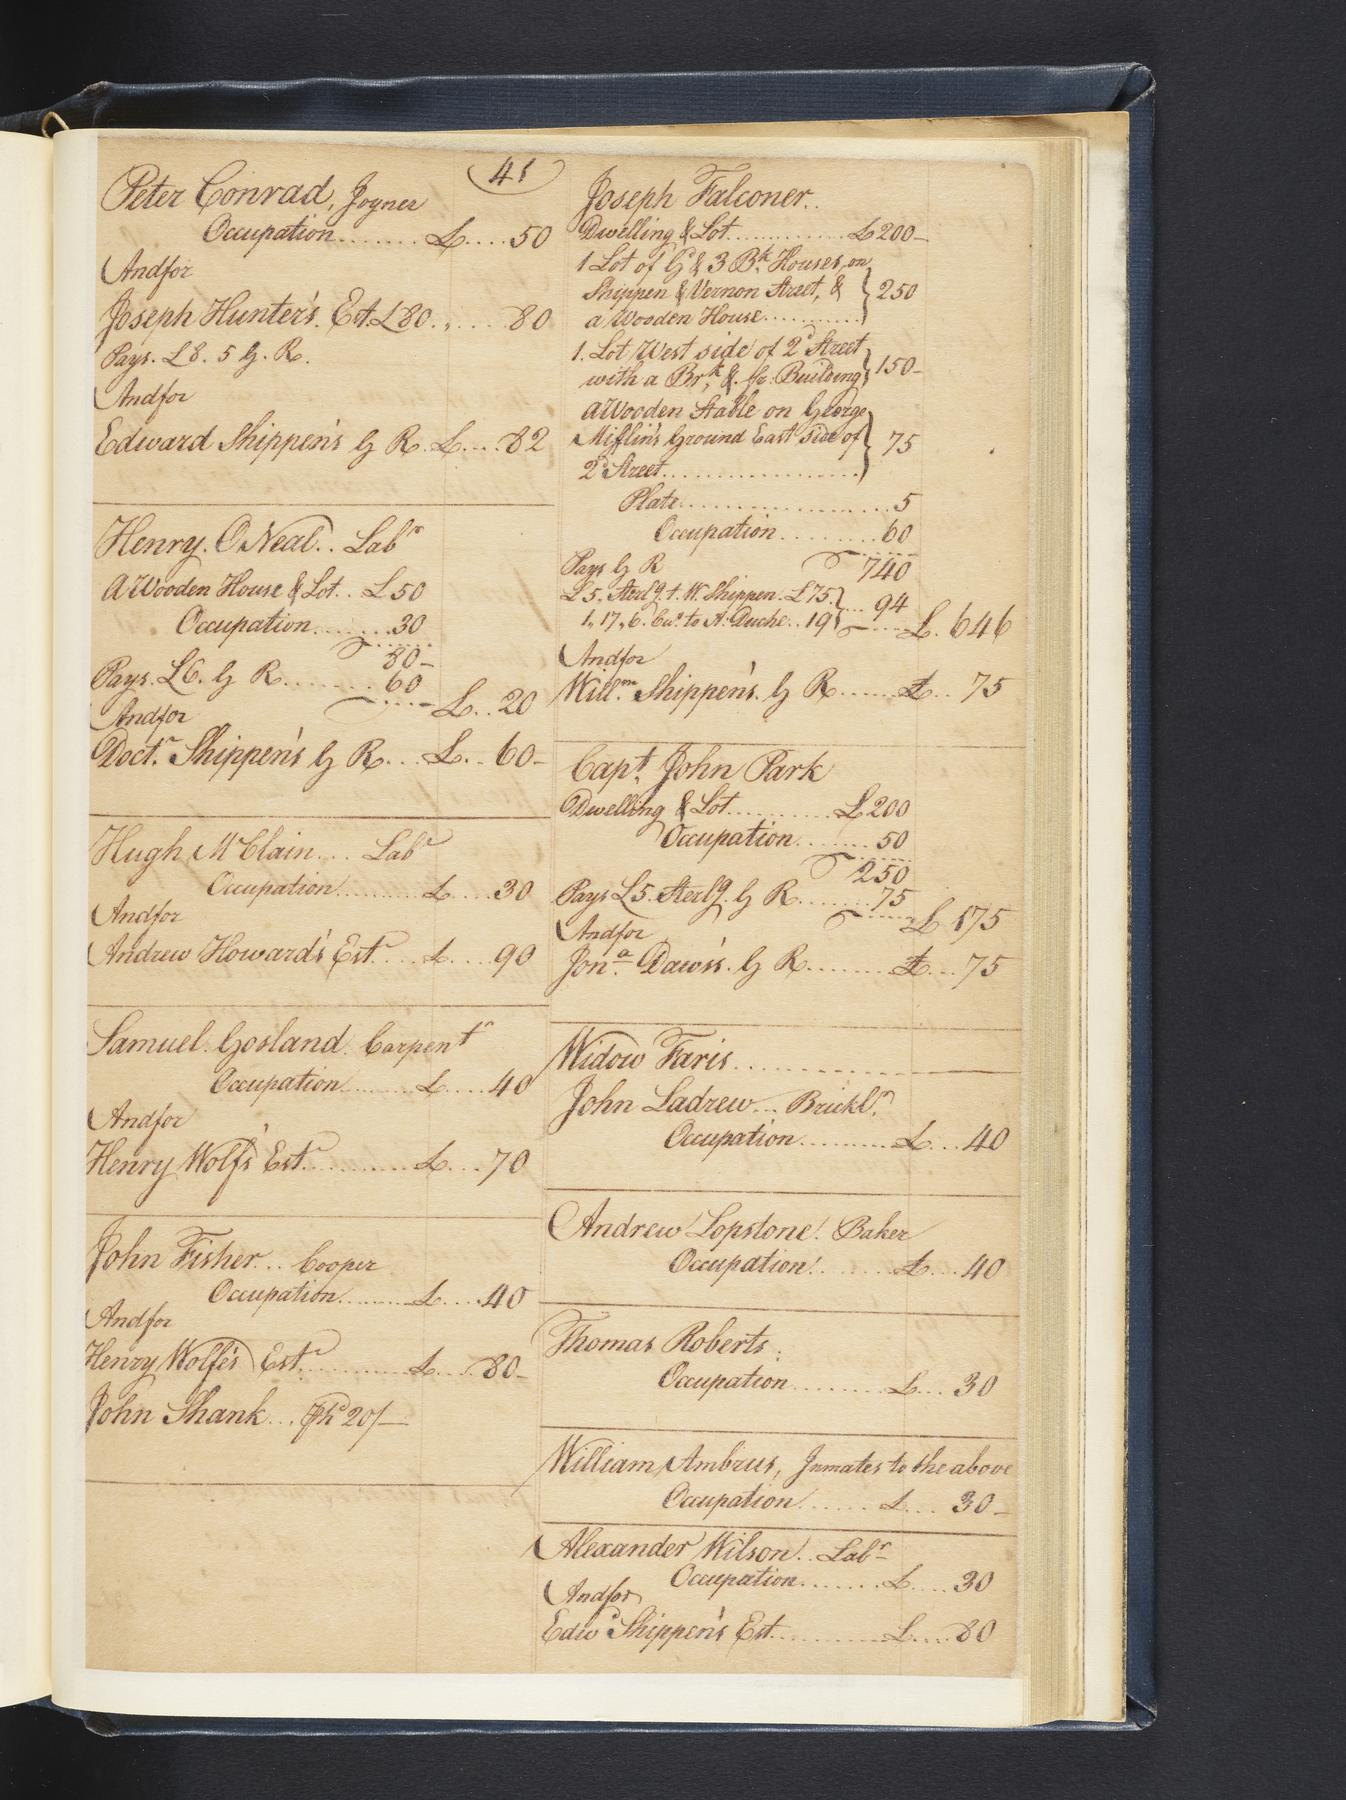 41
Peter Conrad, Joyner
Occupation........£....50
Andfor
Joseph Hunter's. Est. £80......80
Pays. £8. 5 G. R.
Andfor
Edward Shippen's G R. £....82
Henry. O Neal.. Labr
A Wooden House & Lot.. £50
Occupation........30
80-
Pays. £6. G R........60
£...20
Andfor
Doctr. Shippen's G R...£..60-
Hugh McClain... Labr
Occupation..........£....30
Andfor
Andrew Howard's Estr....£....90
Samuel. Gosland. Carpentr
Occupation..........£....40
Andfor
Henry Wolf's Estr...........£....70
John Fisher... Cooper
Occupation..........£....40
Andfor
Henry Wolfe's Estr..........£....80-
John Shank... 20/—
Joseph Falconer..
Dwelling & Lot.............£200-
1 Lot of Gd & 3 Bk. Houses, on
Shippen & Vernon Street, & } 250
a Wooden House............
1. Lot West side of 2d Street
with a Brk. & fr: Building } 150-
A Wooden Stable on George
Mifflin's Ground East Side of } 75
2d Street....................
Plate.....................5
Occupation..........60
740
Pays G R
£5. Sterlg. t. W. Shippen. £75. } ... 94
1,, 17,, 6. Cur. to A. Duche.. 19 £. 646
Andfor
Willm. Shippen's. G R.......£... 75
Capt. John Park
Dwelling & Lot...........£200
Occupation........50
250
Pays £5. Sterlg. G R........75
£ 175
Andfor
Jona. Daws's. G R........£....75
Widow Faris..............
John Ladrew... Brickl.r
Occupation..........£....40
Andrew Lopstone. Baker
Occupation.........£....40
Thomas Roberts.
Occupation.........£....30
William Ambrus, Inmates to the above
Occupation........£....30-
Alexander Wilson.. Labr
Occupation........£....30
Andfor
Edwd Shippen's Est...........£....80